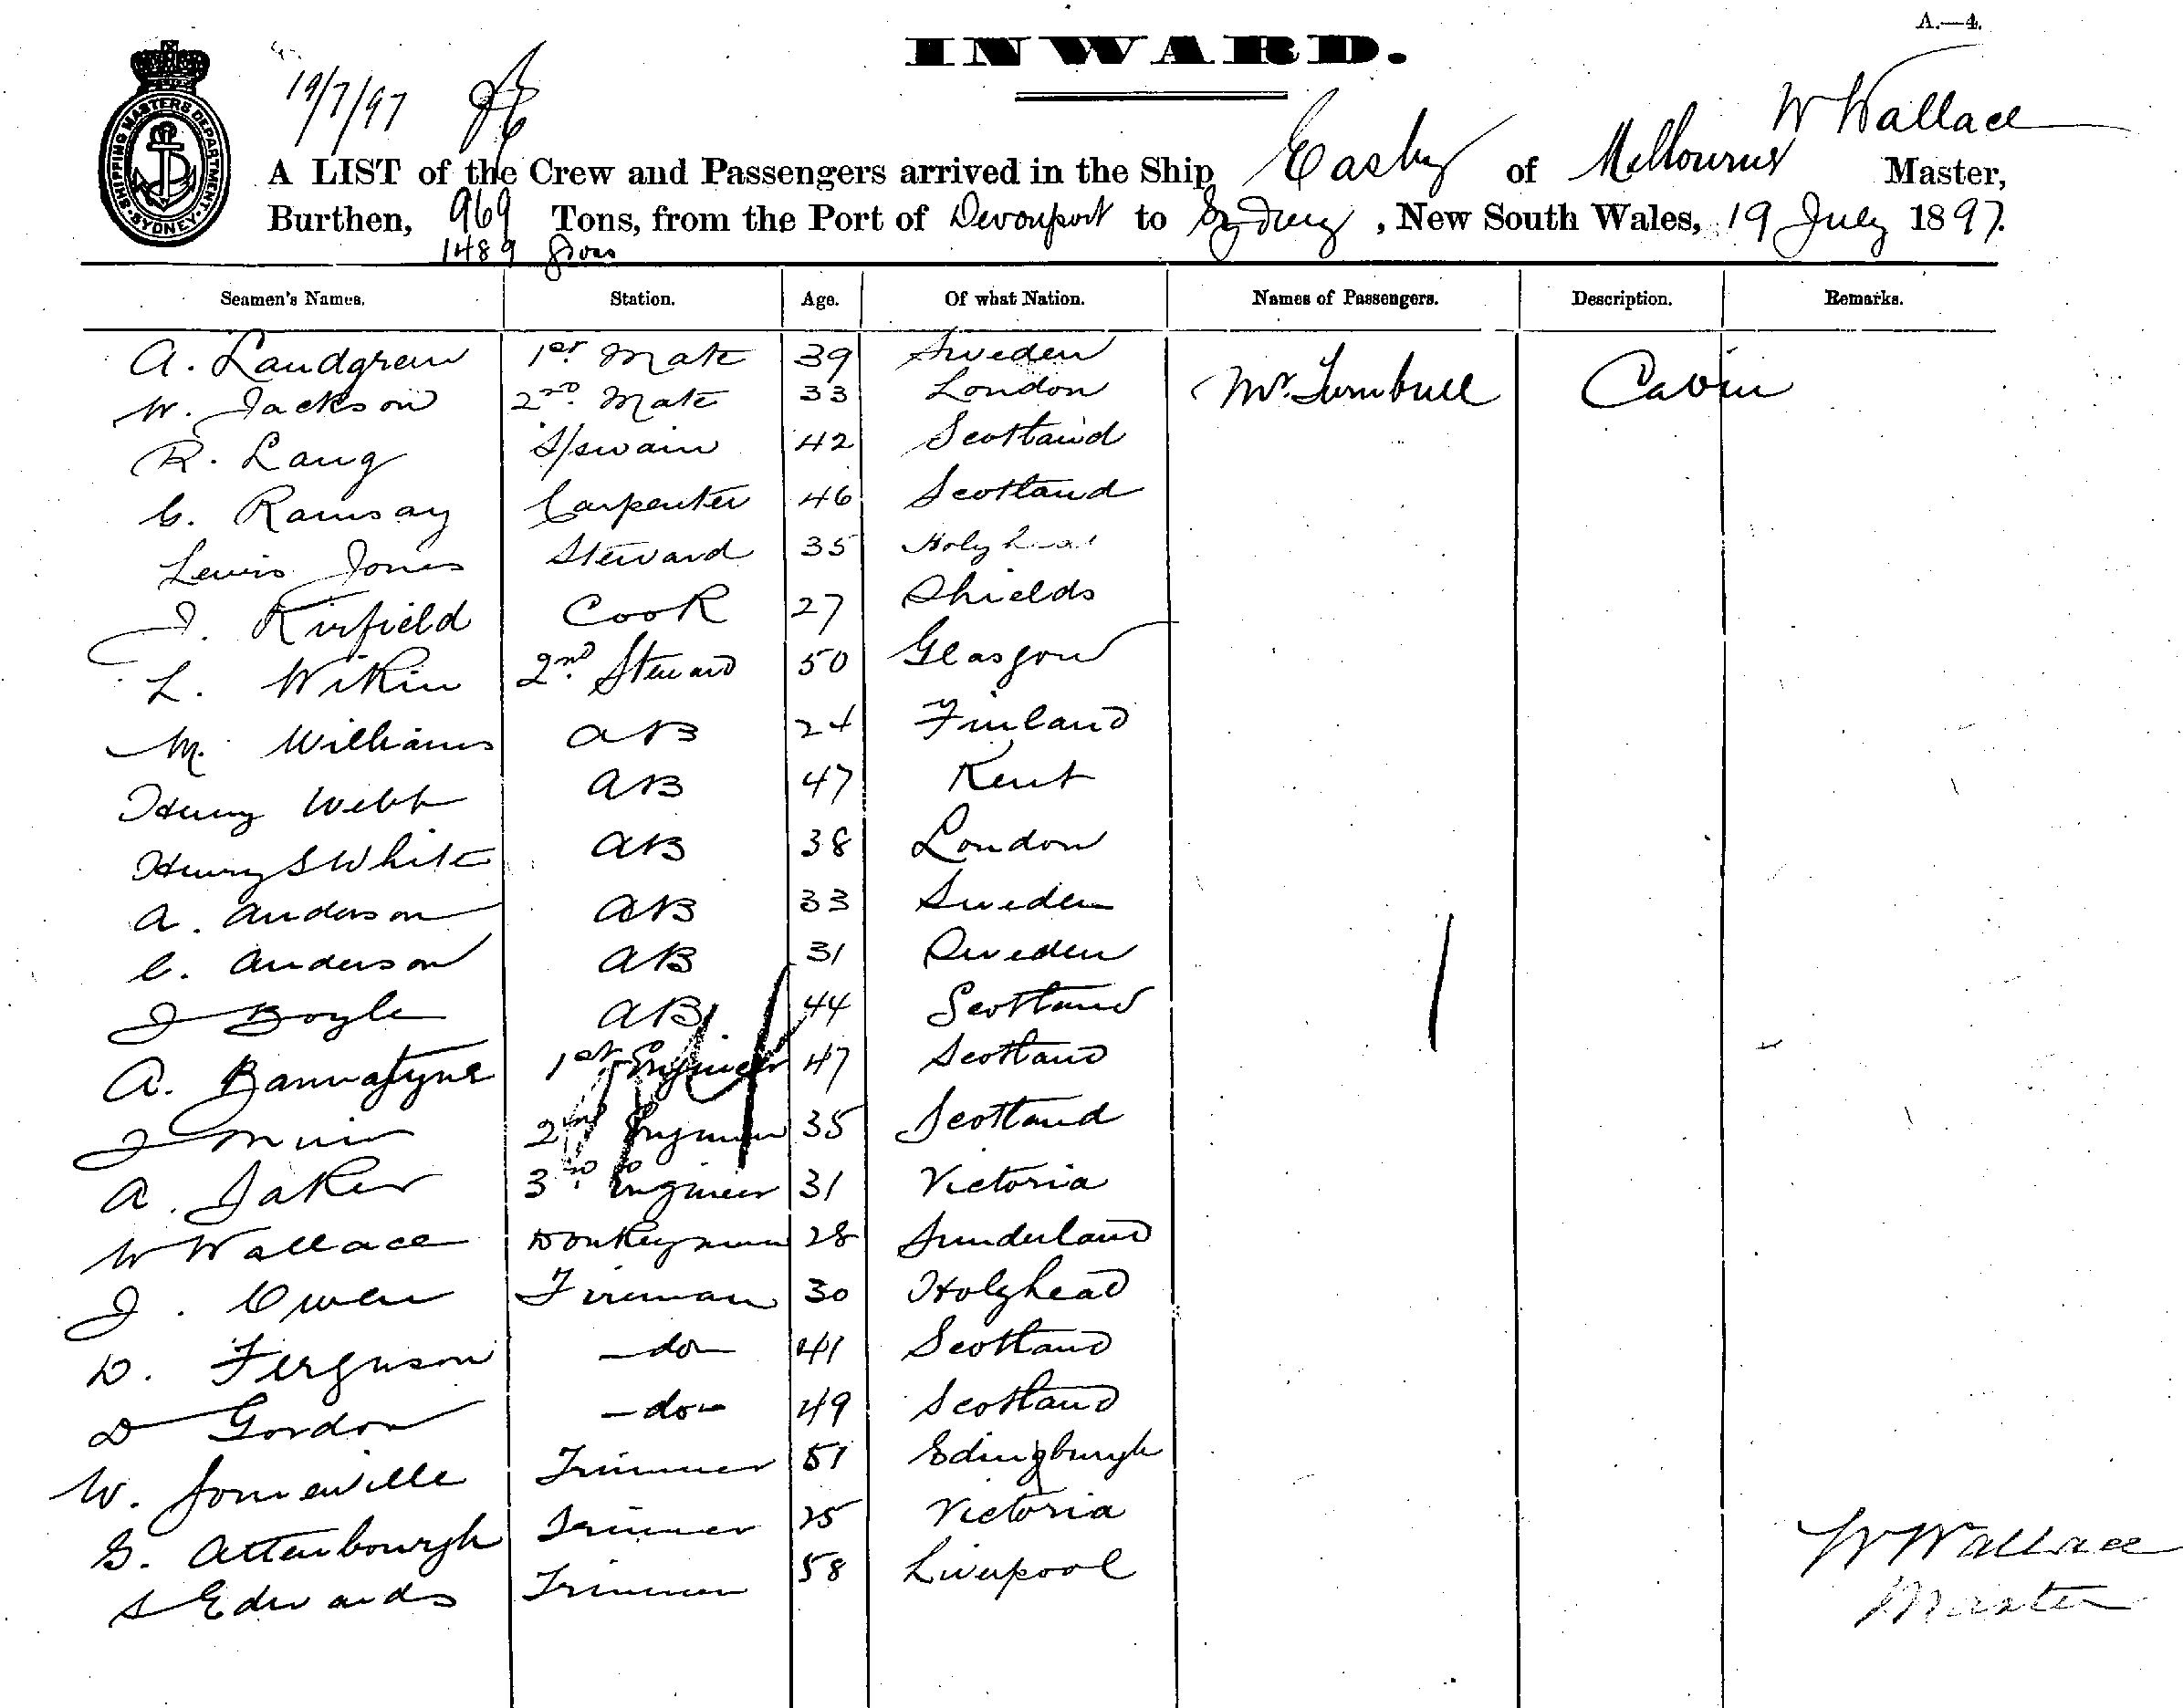 A.—4.
INWARD.
19/7/97
W Wallace
A LIST of the Crew and Passengers arrived in the Ship Easby of Melbourne Master,
Burthen, 969 Tons, from the Port of Devonport to Sydney, New South Wales, 19 July 1897.
1489 Gross
SHIPPING MASTERS DEPARTMENT SYDNEY
Seamen's Names. Station. Age. Of what Nation. Names of Passengers. Description. Remarks.
A. Landgren 1st Mate 39 Sweden
W. Jackson 2nd Mate 33 London Mr. Turnbull Cabin
R. Lang 42 Scotland
C. Ramsay Carpenter 46 Scotland
Lewis Jones Steward 35 Holyhead
J. Kirfield Cook 27 Shields
L. Wikin 2nd Steward 50 Glasgow
M. Williams AB 24 Finland
Henry Webb AB 47 Kent
Henry S White AB 38 London
A. Anderson AB 33 Sweden
C. Anderson AB 31 Sweden
J Boyle AB 44 Scotland
A. Bannatyne 1st Engineer 47 Scotland
J Muir 2nd Engineer 35 Scotland
A. 3rd Engineer 31 Victoria
W Wallace Donkeyman 28 Sunderland
J. Owen Fireman 30 Holyhead
D. Ferguson —do— 41 Scotland
D Gordon —do— 49 Scotland
W. Somerville Trimmer 51 Edingburgh
G. Attenbourgh Trimmer 25 Victoria
S Edwards Trimmer 58 Liverpool
W Wallace
Master